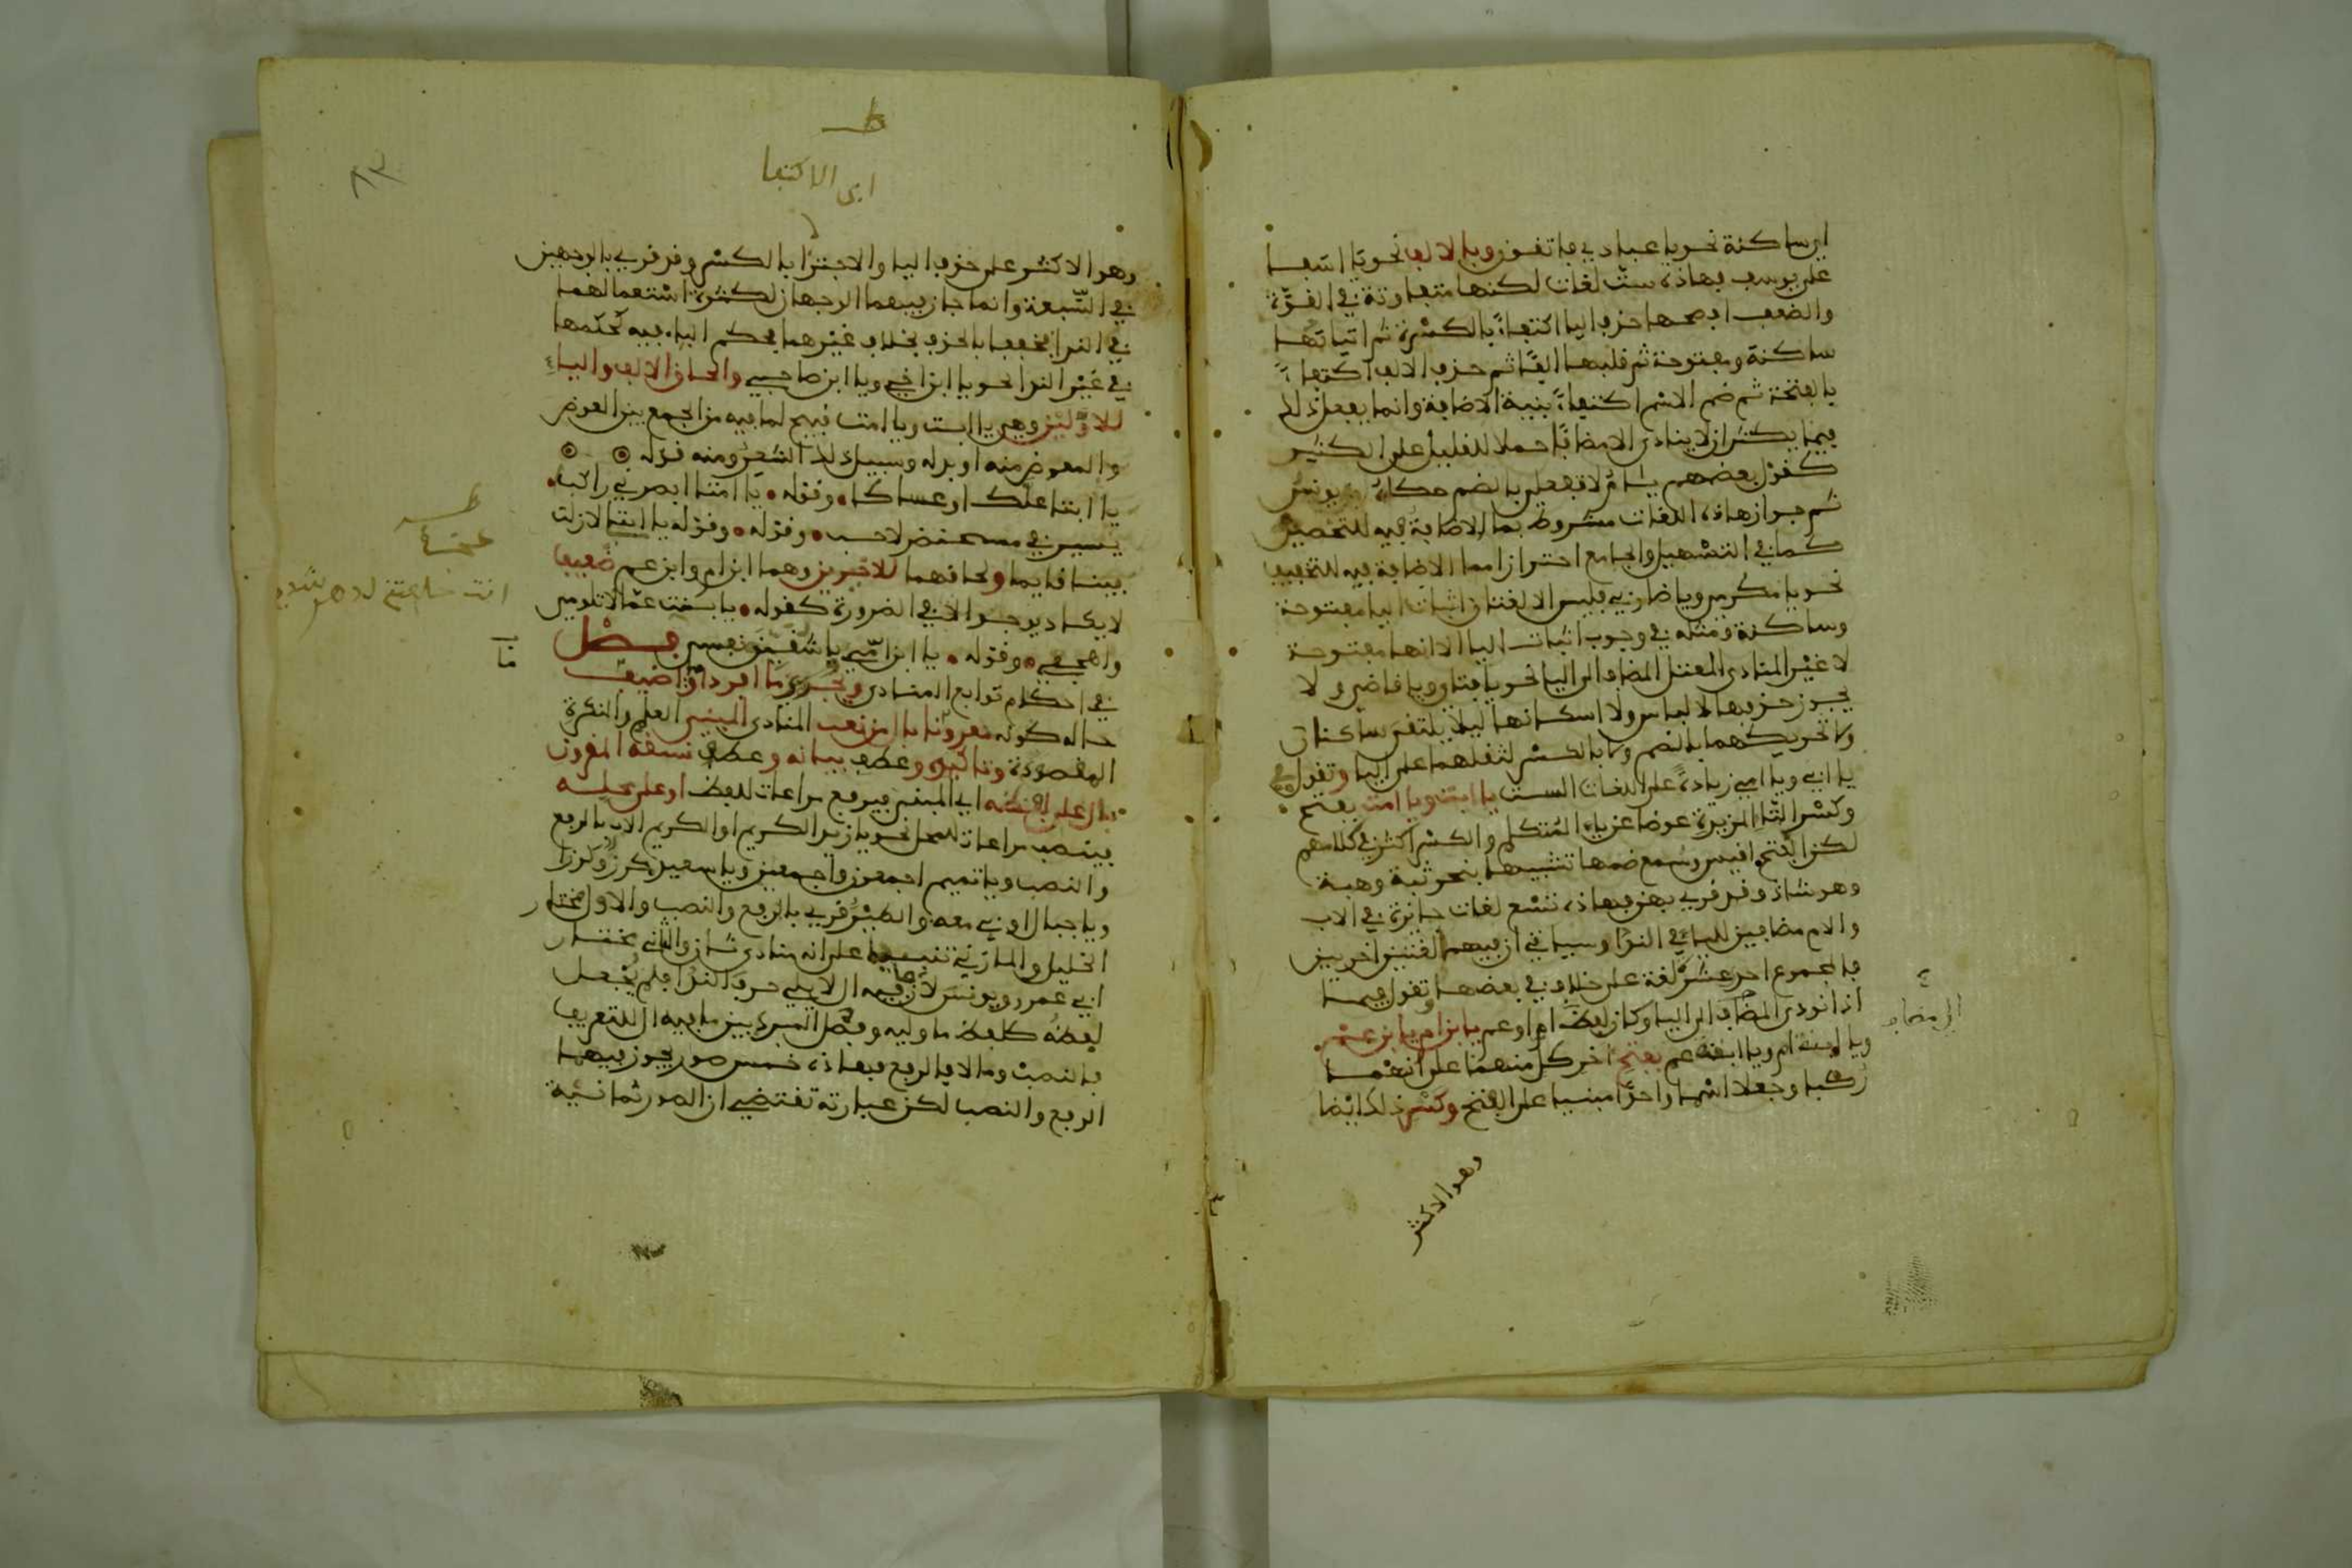 اي ساكنة نحو يا عبادي فاتقون وبالالف نحو يا اسفا
على يوسف فهاذه ست لغات لكنها متفاوتة في القوة
والضعف افصحها حذف اليا اكتفاءً بالكسرة ثم اثباتها
ساكنة ومفتوحة ثم قلبها الفًا ثم حذف الالف اكتفاءً
بالفتحة ثم ضم الاسم اكتفاءً بنية الاضافة وانما يفعل ذلك
فيما يكثر ان لا ينادى الا مضافًا حملا للقليل على الكثير
كقول بعضهم يا امُّ لا تفعلي بالضم حكاه يونس
ثم جواز هاذه اللغات مشروط بما الاضافة فيه للتخصيص
كما في التسهيل والجامع احترازا مما الاضافة فيه للتخفيف
نحو يا مكرمي ويا ضاربي فليس الا لغتان اثبات اليا مفتوحة
وساكنة ومثله في وجوب اثبات اليا الا انها مفتوحة
لا غير المنادى المعتل المضاف الى اليا نحو يا فتاي ويا قاضي ولا
يجوز حذفها لالباس ولا اسكانها ليلا يلتقي ساكنان
ولا تحريكهما بالضم ولا بالكسر لثقلهما على اليا وتقول في
يا ابي ويا امي زيادةً على اللغات الست يا ابت ويا امت بفتح
وكسر التاء المزيدة عوضا عن ياء المتكلم والكسر اكثر في كلامهم
لكن الفتح اقيس وسمع ضمها تشبيها بنحو ثبة وهبة
وهو شاذ وقد قرىء بهن فهاذه تسع لغات جائزة في الاب
والام مضافين لليا في النداء وسياتي ان فيهما لغتين اخريين
فالمجموع احد عشر لغة على خلاف في بعضها تقول فيما
اذا نودي المضاف الى اليا وكان لفظ ام او عم يا ابن ام ويا ابن عم
ويا ابنة ام ويا ابنة عم بفتح اخر كل منهما على انهما
ركبا وجعلا اسما واحدًا مبنيا على الفتح وكسر ذلك ايضا
وهو الاكثر
الى مضاف
ط
اى الاكتفا
٨٣
وهو الاكثر على حذف اليا والاجتزا بالكسر وقد قرىء بالوجهين
في السبعة وانما جاز فيهما الوجهان لكثرة استعمالهما
في الندا فخففا بالحذف بخلاف غيرهما فحكم الياء فيه كحكمها
في غير الندا نحو يا ابن اخي ويا ابن صاحبي والحاق الالف والياء
للاوليين وهي يا ابت ويا امت قبيح لما فيه من الجمع بين العوض
والمعوض منه او بدله وسبيل ذلك الشعر ومنه قوله
يا ابتا علك او عساكا وقوله يا امتا ابصرني راكب
يسير في مسحنفر لاحب وقوله وقوله يا ابتي لا زلت
فينا فايما ولحاقهما للاخيرين وهما ابن ام وابن عم ضعيف
لا يكاد يوجد الا في الضرورة كقوله يا بنت عما لا تلومي
واهجعي وقوله يا ابن امي يا شقيق نفسي فصل
في احكام توابع المنادى ويجري ما افرد او اضيف
حاله كونه مقرونا بال من نعت المنادى المبني العلم والنكرة
المقصودة وتاكيده وعطف بيانه وعطف نسقه المقرون
بال على لفظه اي المبني فيرفع مراعات للفظ او على محله
فينصب مراعات للمحل نحو يا زيد الكريم او الكريم الاب بالرفع
والنصب ويا تميم اجمعون واجمعين ويا سعيد كرز وكرزا
ويا جبال اوبي معه والطير قرىء بالرفع والنصب والاول مختار
الخليل والمازني تنبيها على انه منادى ثان والثاني مختار
ابي عمرو ويونس لان ما فيه ال لا يلي حرف النداء فلم يجعل
لفظه كلفظ ما وليه وفصل المبرد بين ما فيه ال للتعريف
فالنصب وما لا فالرفع فهاذه خمس صور يجوز فيها
الرفع والنصب لكن عبارته تقتضي ان الصور ثمانية
ط